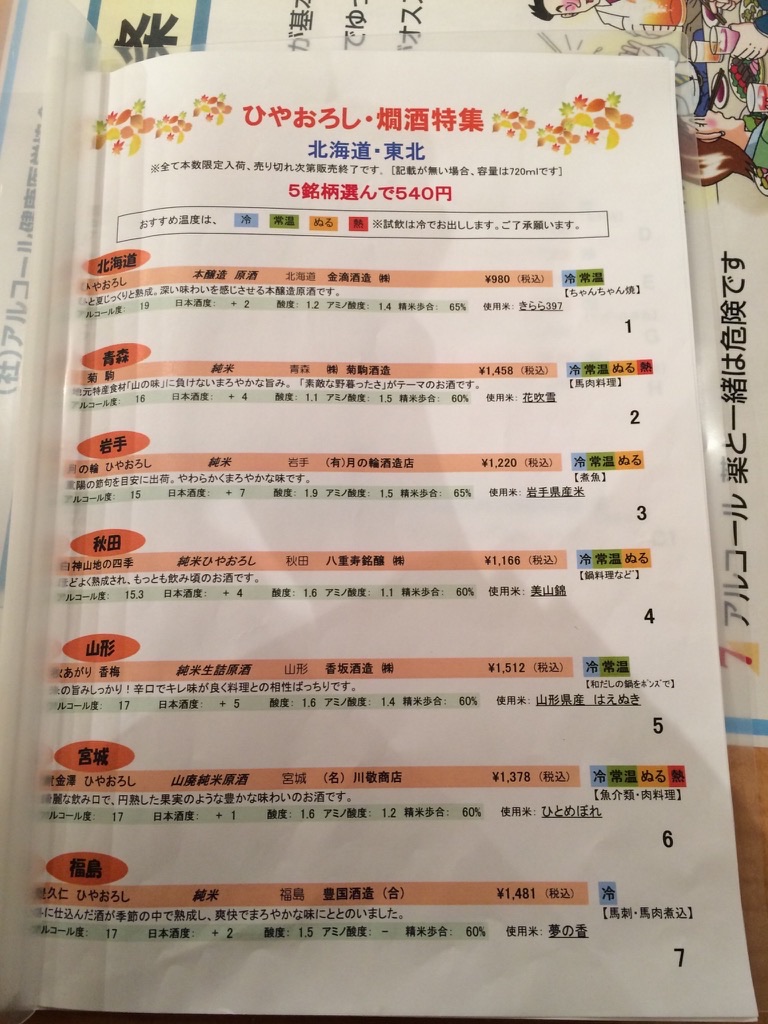 条
が基本
でゆっ
がオス
(社)アルコール健康医学協会
ひやおろし・燗酒特集
北海道・東北
※全て本数限定入荷、売り切れ次第販売終了です. [記載が無い場合、容量は720mlです]
5銘柄選んで540円
おすすめ温度は、 冷 常温 ぬる 熱 ※試飲は冷でお出しします。ご了承願います。
北海道
ひやおろし 本醸造 原酒 北海道 金滴酒造 ㈱ ¥980 (税込) 冷 常温
と夏じっくりと熟成。深い味わいを感じさせる本醸造原酒です。 【ちゃんちゃん焼】
アルコール度: 19 日本酒度: + 2 酸度: 1.2 アミノ酸度: 1.4 精米歩合: 65% 使用米: きらら397
1
青森
菊 駒 純米 青森 ㈱ 菊駒酒造 ¥1,458 (税込) 冷 常温 ぬる 熱
地元特産食材「山の味」に負けないまろやかな旨み。「素敵な野暮ったさ」がテーマのお酒です。 【馬肉料理】
アルコール度: 16 日本酒度: + 4 酸度: 1.1 アミノ酸度: 1.5 精米歩合: 60% 使用米: 花吹雪
2
岩手
月の輪 ひやおろし 純米 岩手 (有)月の輪酒造店 ¥1,220 (税込) 冷 常温 ぬる
陽の節句を目安に出荷。やわらかくまろやかな味です。 【煮魚】
アルコール度: 15 日本酒度: + 7 酸度: 1.9 アミノ酸度: 1.5 精米歩合: 65% 使用米: 岩手県産米
3
秋田
白神山地の四季 純米ひやおろし 秋田 八重寿銘醸 ㈱ ¥1,166 (税込) 冷 常温 ぬる
ほどよく熟成され、もっとも飲み頃のお酒です。 【鍋料理など】
アルコール度: 15.3 日本酒度: + 4 酸度: 1.6 アミノ酸度: 1.1 精米歩合: 60% 使用米: 美山錦
4
山形
秋あがり 香梅 純米生詰原酒 山形 香坂酒造 ㈱ ¥1,512 (税込) 冷 常温
の旨みしっかり!辛口でキレ味が良く料理との相性ばっちりです。 【和だしの鍋をポンズで】
アルコール度: 17 日本酒度: + 5 酸度: 1.6 アミノ酸度: 1.4 精米歩合: 60% 使用米: 山形県産 はえぬき
5
宮城
黄金澤 ひやおろし 山廃純米原酒 宮城 (名) 川敬商店 ¥1,378 (税込) 冷 常温 ぬる 熱
綺麗な飲み口で、円熟した果実のような豊かな味わいのお酒です。 【魚介類・肉料理】
アルコール度: 17 日本酒度: + 1 酸度: 1.6 アミノ酸度: 1.2 精米歩合: 60% 使用米: ひとめぼれ
6
福島
久仁 ひやおろし 純米 福島 豊国酒造 (合) ¥1,481 (税込) 冷
に仕込んだ酒が季節の中で熟成し、爽快でまろやかな味にととのいました。 【馬刺・馬肉煮込】
アルコール度: 17 日本酒度: + 2 酸度: 1.5 アミノ酸度: - 精米歩合: 60% 使用米: 夢の香
7
7 アルコール 薬と一緒は危険です